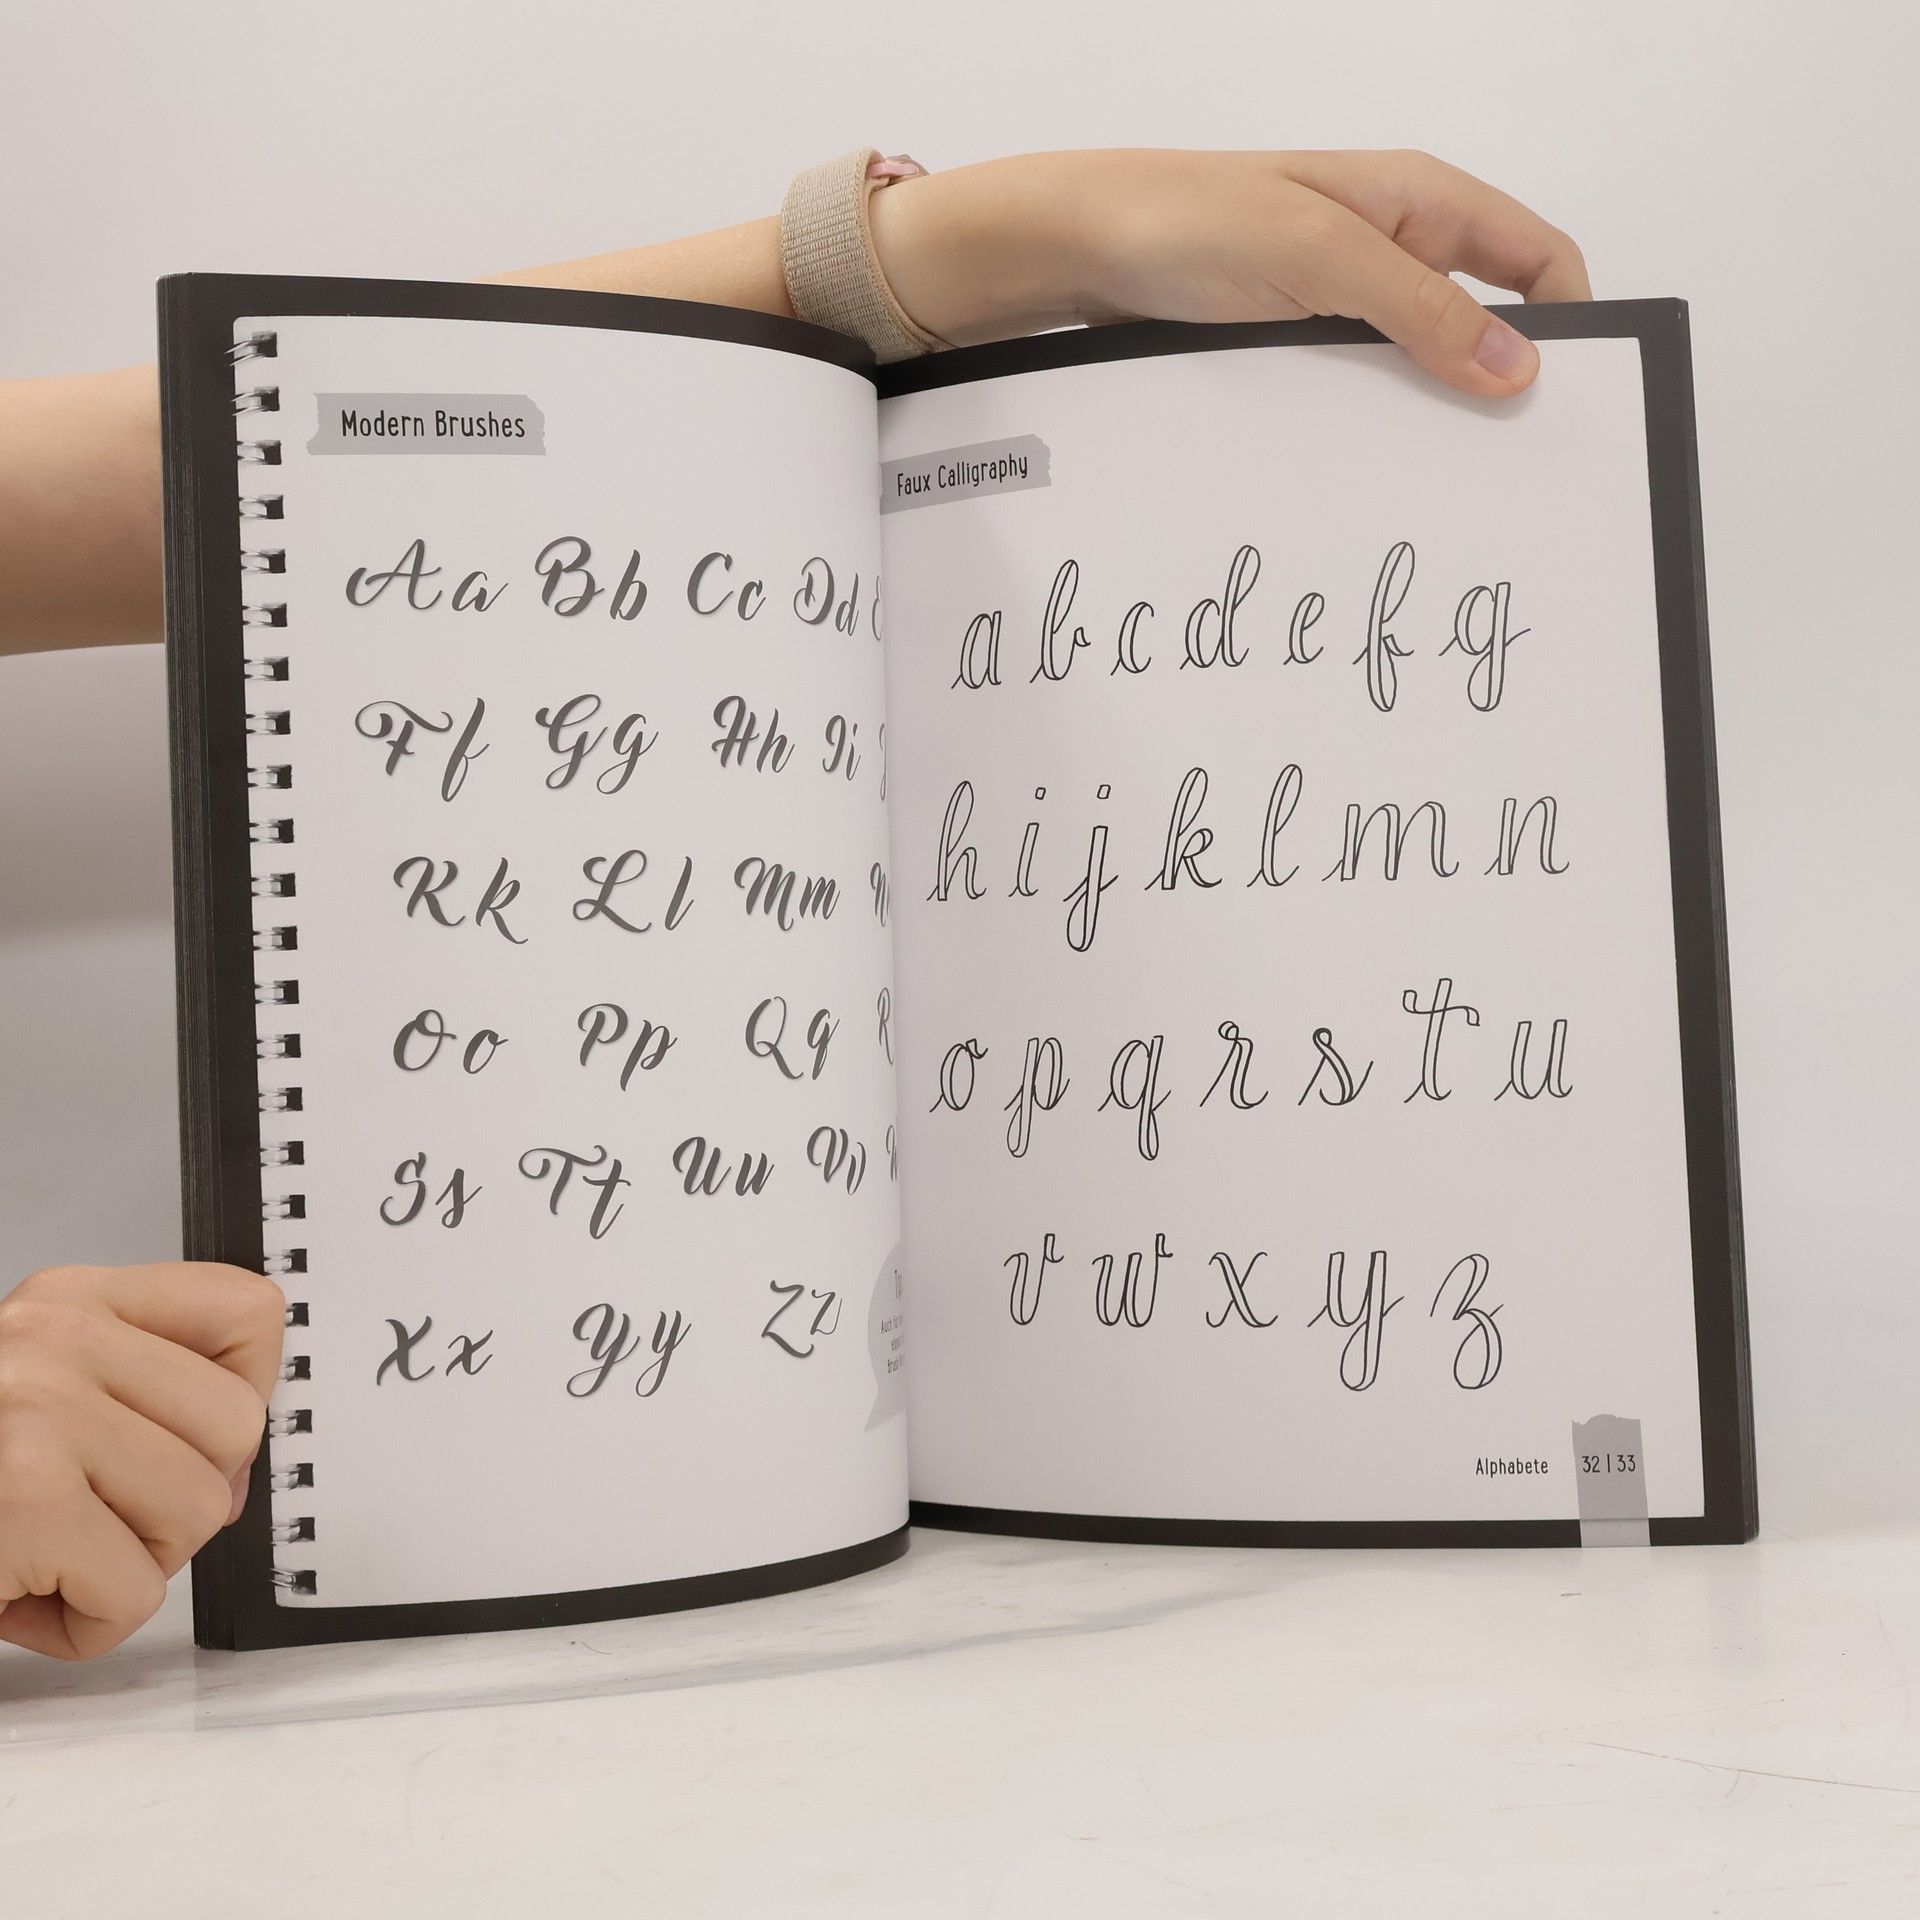 Modern Brushes
Aa Bb Cc Dd
Ff Gg Hh Ii
Kk Ll Mm
Oo Pp Qq R
Ss Tt Uu Vv
Xx Yy Zz
Faux Calligraphy
a b c d e f g
h i j k l m n
o p q r s t u
v w x y z
Alphabete 32 | 33